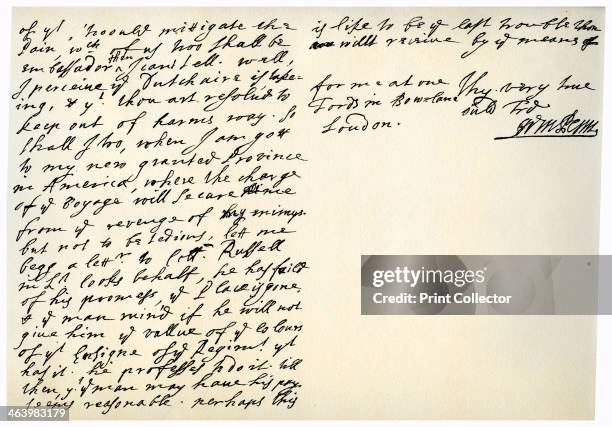 of yt, twould mittigate the
pain, wch of us two shall be
embassador then I can't tell. Well,
I perceive ye Dutch aire is take-
ing, & yt thou art resolv'd to
keep out of harms way. So
shall I too, when I am gott
to my new granted Province
in America, where the charge
of ye Voyage will Secure me
from ye revenge of my enimys.
but not to be tedious, lett me
begg a lettr to Coll. Russell
in Lt looks behalf, he has faild
of his promess, ye Place is gone,
& ye man mind if he will not
give him ye vallue of ye Colours
of yt Ensigne of ye Regimt yt
has it. he professes to do it. till
then, ye man may have his pay.
seems reasonable. perhaps this
is like to be ye last trouble thou
willt receive by ye means of
for me at one Thy very true
Fords in Bow lane ould Frd
London. Wm Penn.
gettyimages
Print Collector
463983179